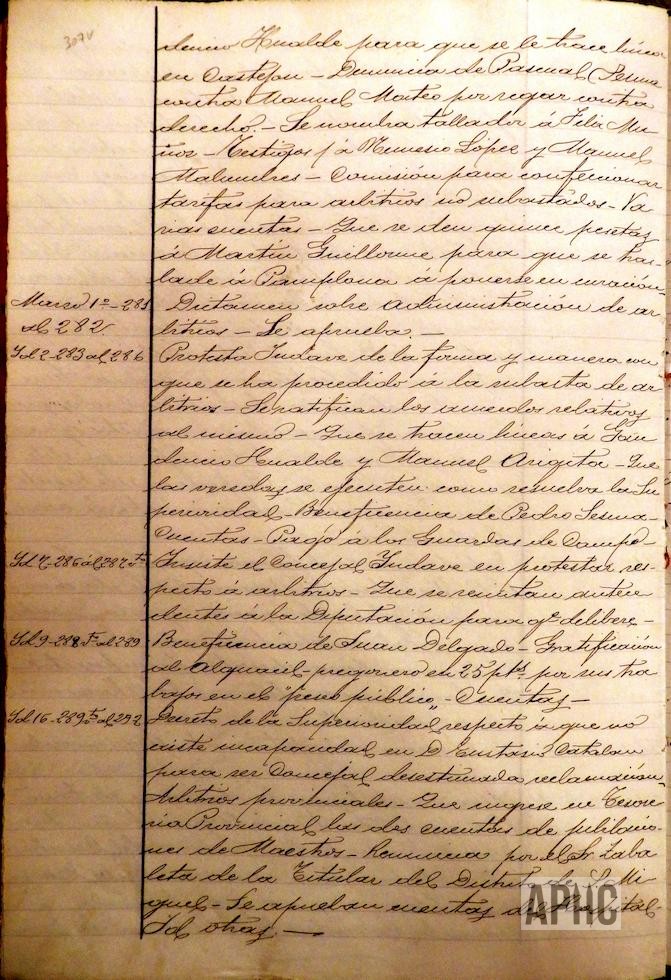 307v
dencio Hualde para que se le trace línea
en Castejon - Denuncia de Pascual Sesma
contra Manuel Mateo por regar contra
derecho. - Se nombra tallador á Felix Mu-
ñoz - Testigos p/ á Nemesio López y Manuel
Malumbres - Comisión para confeccionar
tarifas para arbitrios no subastados - Va-
rias cuentas - Que se den quince pesetas
á Martin Guillorme para que se tras-
lade á Pamplona á ponerse en curación.
Marzo 1º - 281 Dictamen sobre administración de ar-
al 282. bitrios - Se aprueba. -
Id 2 - 283 al 286 Protesta Indave de la forma y manera con
que se ha procedido á la subasta de ar-
bitrios - Se ratifican los acuerdos relativos
al mismo - Que se tracen líneas á Gau-
dencio Hualde y Manuel Arigita - Que
las veredas se ejecuten como resuelva la Su-
perioridad - Beneficencia de Pedro Sesma -
Cuentas - Pago á los Guardas de Campo
Id 7 - 286 al 287 Insiste el Concejal Indave en protestar res-
pecto á arbitrios - Que se remitan antece-
dentes á la Diputación para q.e delibere -
Id 9 - 288 al 289 Beneficencia de Juan Delgado - Gratificación
al Alguacil - pregonero en 25 pts. por sus tra-
bajos en el "peso público" - Cuentas -
Id 16 - 289 al 292 Decreto de la Superioridad respecto á que no
existe incapacidad en D Eustasio Catalan
para ser Concejal desestimada reclamación.
Arbitrios provinciales - Que ingrese en Tesore-
ria Provincial las dos cuentas de jubilacio-
nes de Maestros - Renuncia por el Sr. Zaba-
leta de la Titular del Distrito de S. Mi-
guel - Se aprueban cuentas del Hospital -
Id otras. -
APHC